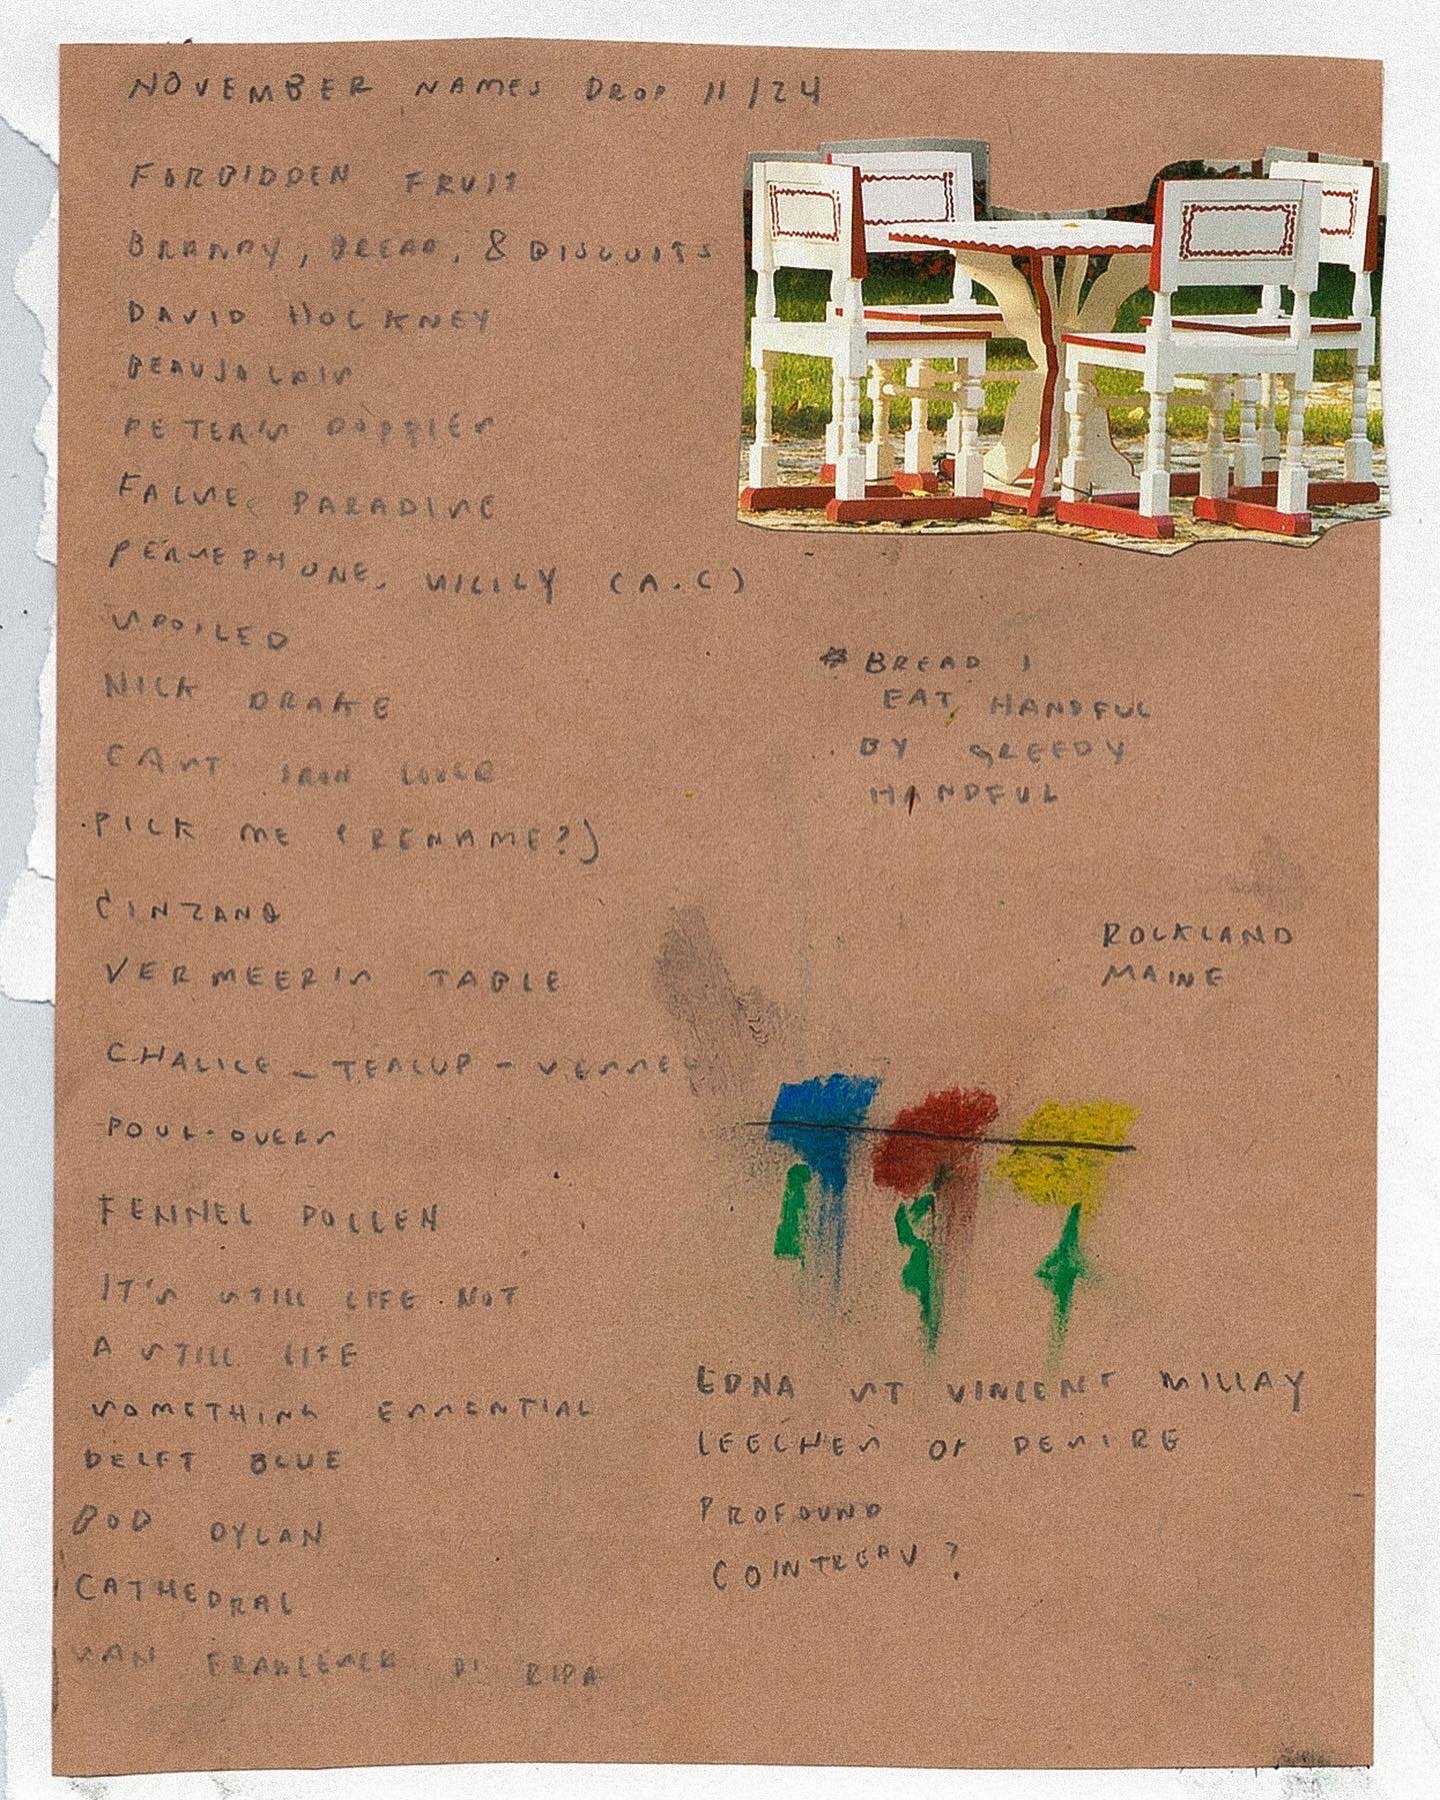 NOVEMBER NAMES DROP 11/24
FORBIDDEN FRUIT
BRANDY, BREAD, & BISCUITS
DAVID HOCKNEY
BEAUJOLAIS
PETER'S POPPIES
FALSE PARADISE
PERSEPHONE, SICILY (A.C)
SPOILED
NICK DRAKE
CAST IRON LOVER
PICK ME (RENAME?)
CINZANO
VERMEER'S TABLE
CHALICE - TEACUP - VESSEL
POUR-OVERS
FENNEL POLLEN
IT'S STILL LIFE NOT
A STILL LIFE
SOMETHING ESSENTIAL
DELFT BLUE
BOB DYLAN
CATHEDRAL
SAN FRANCESCO DI RIPA
* BREAD I
EAT HANDFUL
BY GREEDY
HANDFUL
ROCKLAND
MAINE
EDNA ST VINCENT MILLAY
LEECHES OF DESIRE
PROFOUND
COINTREAU ?